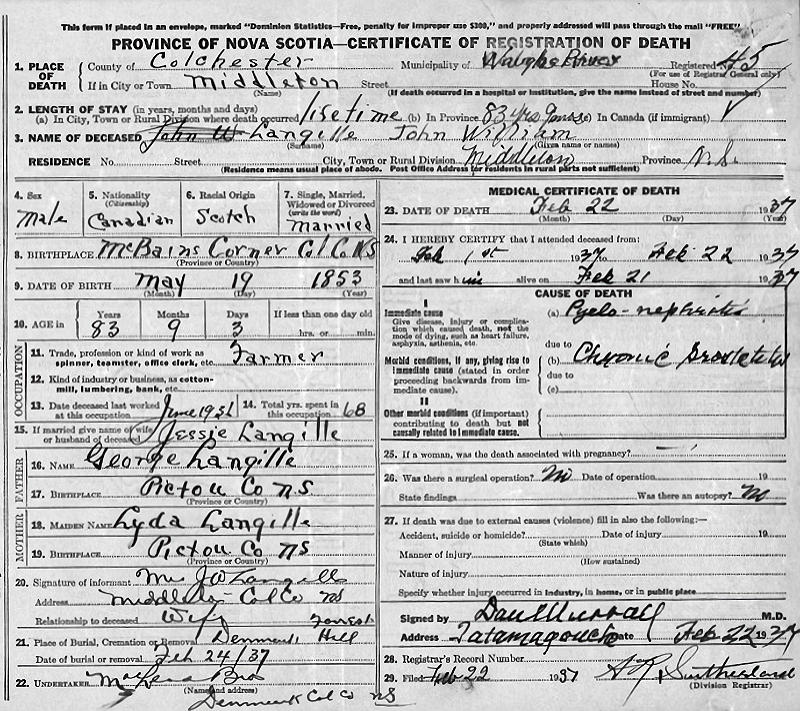 This form if placed in an envelope, marked "Dominion Statistics—Free, penalty for improper use $300," and properly addressed will pass through the mail "FREE"
PROVINCE OF NOVA SCOTIA—CERTIFICATE OF REGISTRATION OF DEATH
1. PLACE OF DEATH
County of Colchester Municipality of Waughs River Registered 45
(For use of Registrar General only)
If in City or Town Middleton Street House No.
(Name) (If death occurred in a hospital or institution, give the name instead of street and number)
2. LENGTH OF STAY (in years, months and days)
(a) In City, Town or Rural Division where death occurred lifetime (b) In Province 83 yrs 9 mos (c) In Canada (if immigrant)
3. NAME OF DECEASED John W Langille John William
(Surname) (Given name or names)
RESIDENCE No. Street City, Town or Rural Division Middleton Province N.S.
(Residence means usual place of abode. Post Office Address for residents in rural parts not sufficient)
4. Sex Male
5. Nationality (Citizenship) Canadian
6. Racial Origin Scotch
7. Single, Married, Widowed or Divorced (write the word) Married
8. BIRTHPLACE McBains Corner Col Co NS
(Province or Country)
9. DATE OF BIRTH May 19 1853
(Month) (Day) (Year)
10. AGE in Years 83 Months 9 Days 3 If less than one day old hrs. or min.
OCCUPATION
11. Trade, profession or kind of work as spinner, teamster, office clerk, etc. Farmer
12. Kind of industry or business, as cotton-mill, lumbering, bank, etc.
13. Date deceased last worked at this occupation June 14. Total yrs. spent in this occupation 68
15. If married give name of wife or husband of deceased Jessie Langille
FATHER
16. NAME George Langille
17. BIRTHPLACE Pictou Co N.S.
(Province or Country)
MOTHER
18. MAIDEN NAME Lyda Langille
19. BIRTHPLACE Pictou Co NS
(Province or Country)
20. Signature of informant Mrs J W Langille
Address Middleton Col Co NS
Relationship to deceased Wife
21. Place of Burial, Cremation or Removal Denmark Forest Hill
Date of burial or removal Feb 24/37
22. UNDERTAKER Bros
(Name and address)
Denmark Col Co NS
MEDICAL CERTIFICATE OF DEATH
23. DATE OF DEATH Feb 22 1937
(Month) (Day) (Year)
24. I HEREBY CERTIFY that I attended deceased from:
Feb 1st 1937 to Feb 22 1937
and last saw him alive on Feb 21 1937
CAUSE OF DEATH
I
Immediate cause (a) Pyelo-nephritis
Give disease, injury or complication which caused death, not the mode of dying, such as heart failure, asphyxia, asthenia, etc.
due to
Morbid conditions, if any, giving rise to immediate cause (stated in order proceeding backwards from immediate cause). (b) Chronic Prostatitis
due to
(c)
II
Other morbid conditions (if important) contributing to death but not causally related to immediate cause.
25. If a woman, was the death associated with pregnancy?
26. Was there a surgical operation? No Date of operation 19
State findings Was there an autopsy? No
27. If death was due to external causes (violence) fill in also the following:—
Accident, suicide or homicide? Date of injury 19
(State which)
Manner of injury
(How sustained)
Nature of injury
Specify whether injury occurred in industry, in home, or in public place
Signed by Dan Murray M.D.
Address Tatamagouche Date Feb 22 1937
28. Registrar's Record Number
29. Filed Feb 22 1937 Sutherland
(Division Registrar)